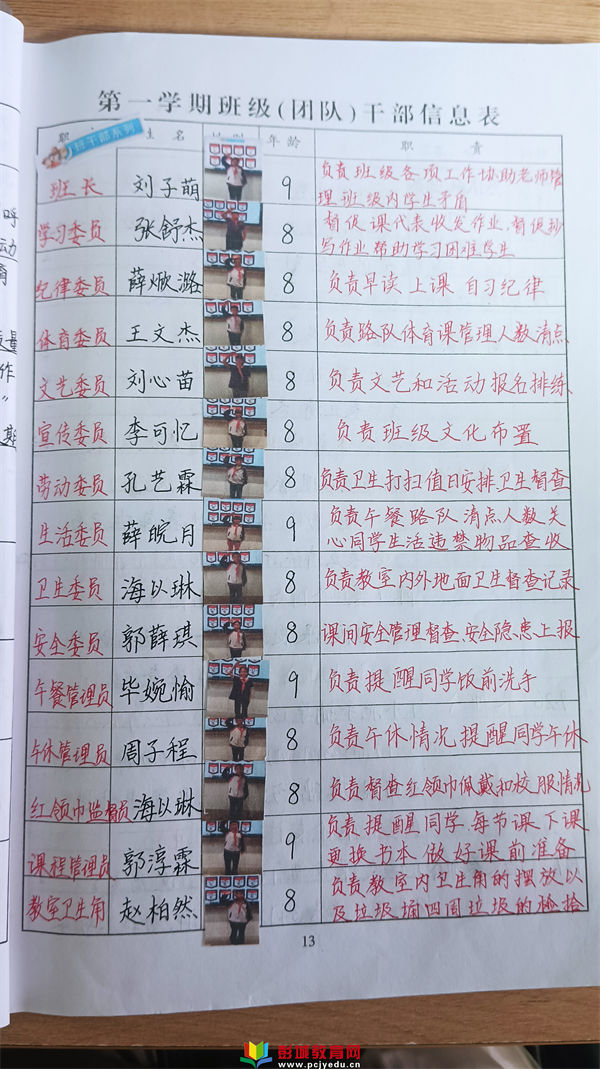 第一学期班级(团队)干部信息表
职 姓名 年龄 职责
班干部系列
班长 刘子萌 9 负责班级各项工作协助老师管
理班级内学生矛盾
学习委员 张舒杰 8 督促课代表收发作业,督促抄
写作业帮助学习困难学生
纪律委员 薛焮潞 8 负责早读 上课 自习纪律
体育委员 王文杰 8 负责路队体育课管理人数清点
文艺委员 刘心苗 8 负责文艺和活动报名排练、
宣传委员 李可忆 8 负责班级文化布置
劳动委员 孔艺霖 8 负责卫生打扫值日安排、卫生督查
生活委员 薛皖月 9 负责午餐路队清点人数关
心同学生活违禁物品查收
卫生委员 海以琳 8 负责教室内外地面卫生督查记录
安全委员 郭薛琪 8 课间安全管理督查、安全隐患上报
午餐管理员 毕婉愉 9 负责提醒同学饭前洗手
午休管理员 周子程 8 负责午休情况 提醒同学午休
红领巾监督员 海以琳 8 负责督查红领巾佩戴和校服情况
课程管理员 郭淳霖 9 负责提醒同学每节课下课
更换书本 做好课前准备
教室卫生角 赵柏然 8 负责教室内卫生角的摆放以
及垃圾桶四周垃圾的捡拾
13
呼
动
育
质量
作
”
期
彭城教育网
www.pcjyedu.cn